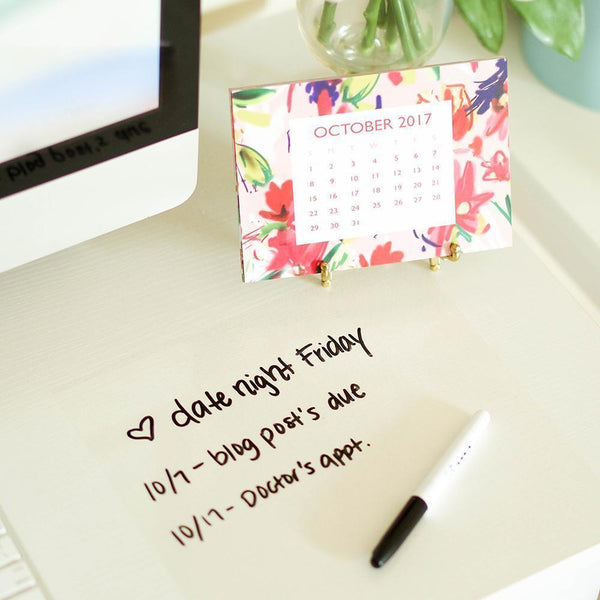 OCTOBER 2017
S M T W T F S
1 2 3 4 5 6 7
8 9 10 11 12 13 14
15 16 17 18 19 20 21
22 23 24 25 26 27 28
29 30 31
♡ date night Friday
10/7 - blog post's due
10/17 - Doctor's appt.